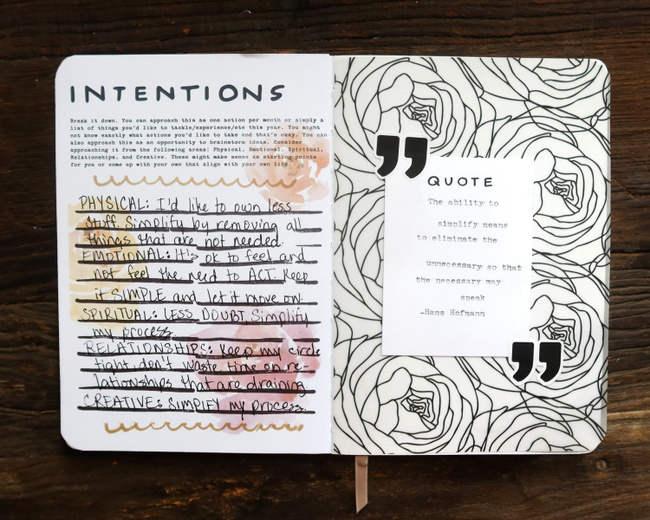 INTENTIONS
Break it down. You can approach this as one action per month or simply a
list of things you'd like to tackle/experience/etc this year. You might
not know exactly what actions you'd like to take and that's okay. You can
also approach this as an opportunity to brainstorm ideas. Consider
approaching it from the following areas: Physical, Emotional, Spiritual,
Relationships, and Creative. These might make sense as starting points
for you or come up with your own that align with your own life.
PHYSICAL: I'd like to own less
stuff. Simplify by removing all
things that are not needed.
EMOTIONAL: It's ok to feel and
not feel the need to ACT. Keep
it SIMPLE and let it move on.
SPIRITUAL: LESS DOUBT. Simplify
my process.
RELATIONSHIPS: Keep my circle
tight, don't waste time on re-
lationships that are draining.
CREATIVE: SIMPIFY my process.
QUOTE
The ability to
simplify means
to eliminate the
unnecessary so that
the necessary may
speak
-Hans Hofmann